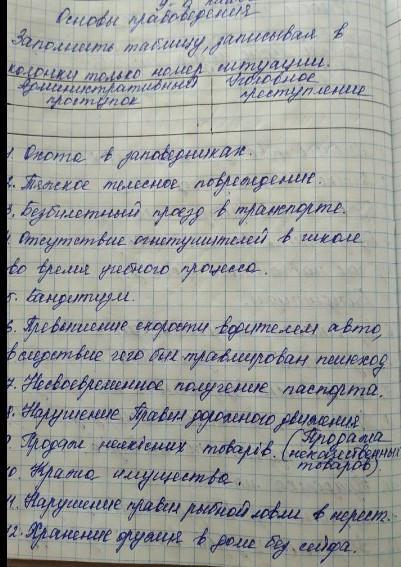 Основы правоведения
Заполнить таблицу, записывая в
колонки только номер ситуации.
Административный проступок
Уголовное преступление
1. Охота в заповедниках.
2. Тяжское телесное повреждение.
3. Безбилетный проезд в транспорте.
4. Отсутствие огнетушителей в школе
во время учебного процесса.
5. Бандитизм.
6. Превышение скорости водителем авто,
вследствие чего был травмирован пешеход
7. Несвоевременное получение паспорта.
8. Нарушение Правил дорожного движения
9. Продаж неякісних товарів. (Продажа некачественных товаров).
10. Кража имущества.
11. Нарушение правил рыбной ловли в нерест.
12. Хранение оружия в доме без сейфа.